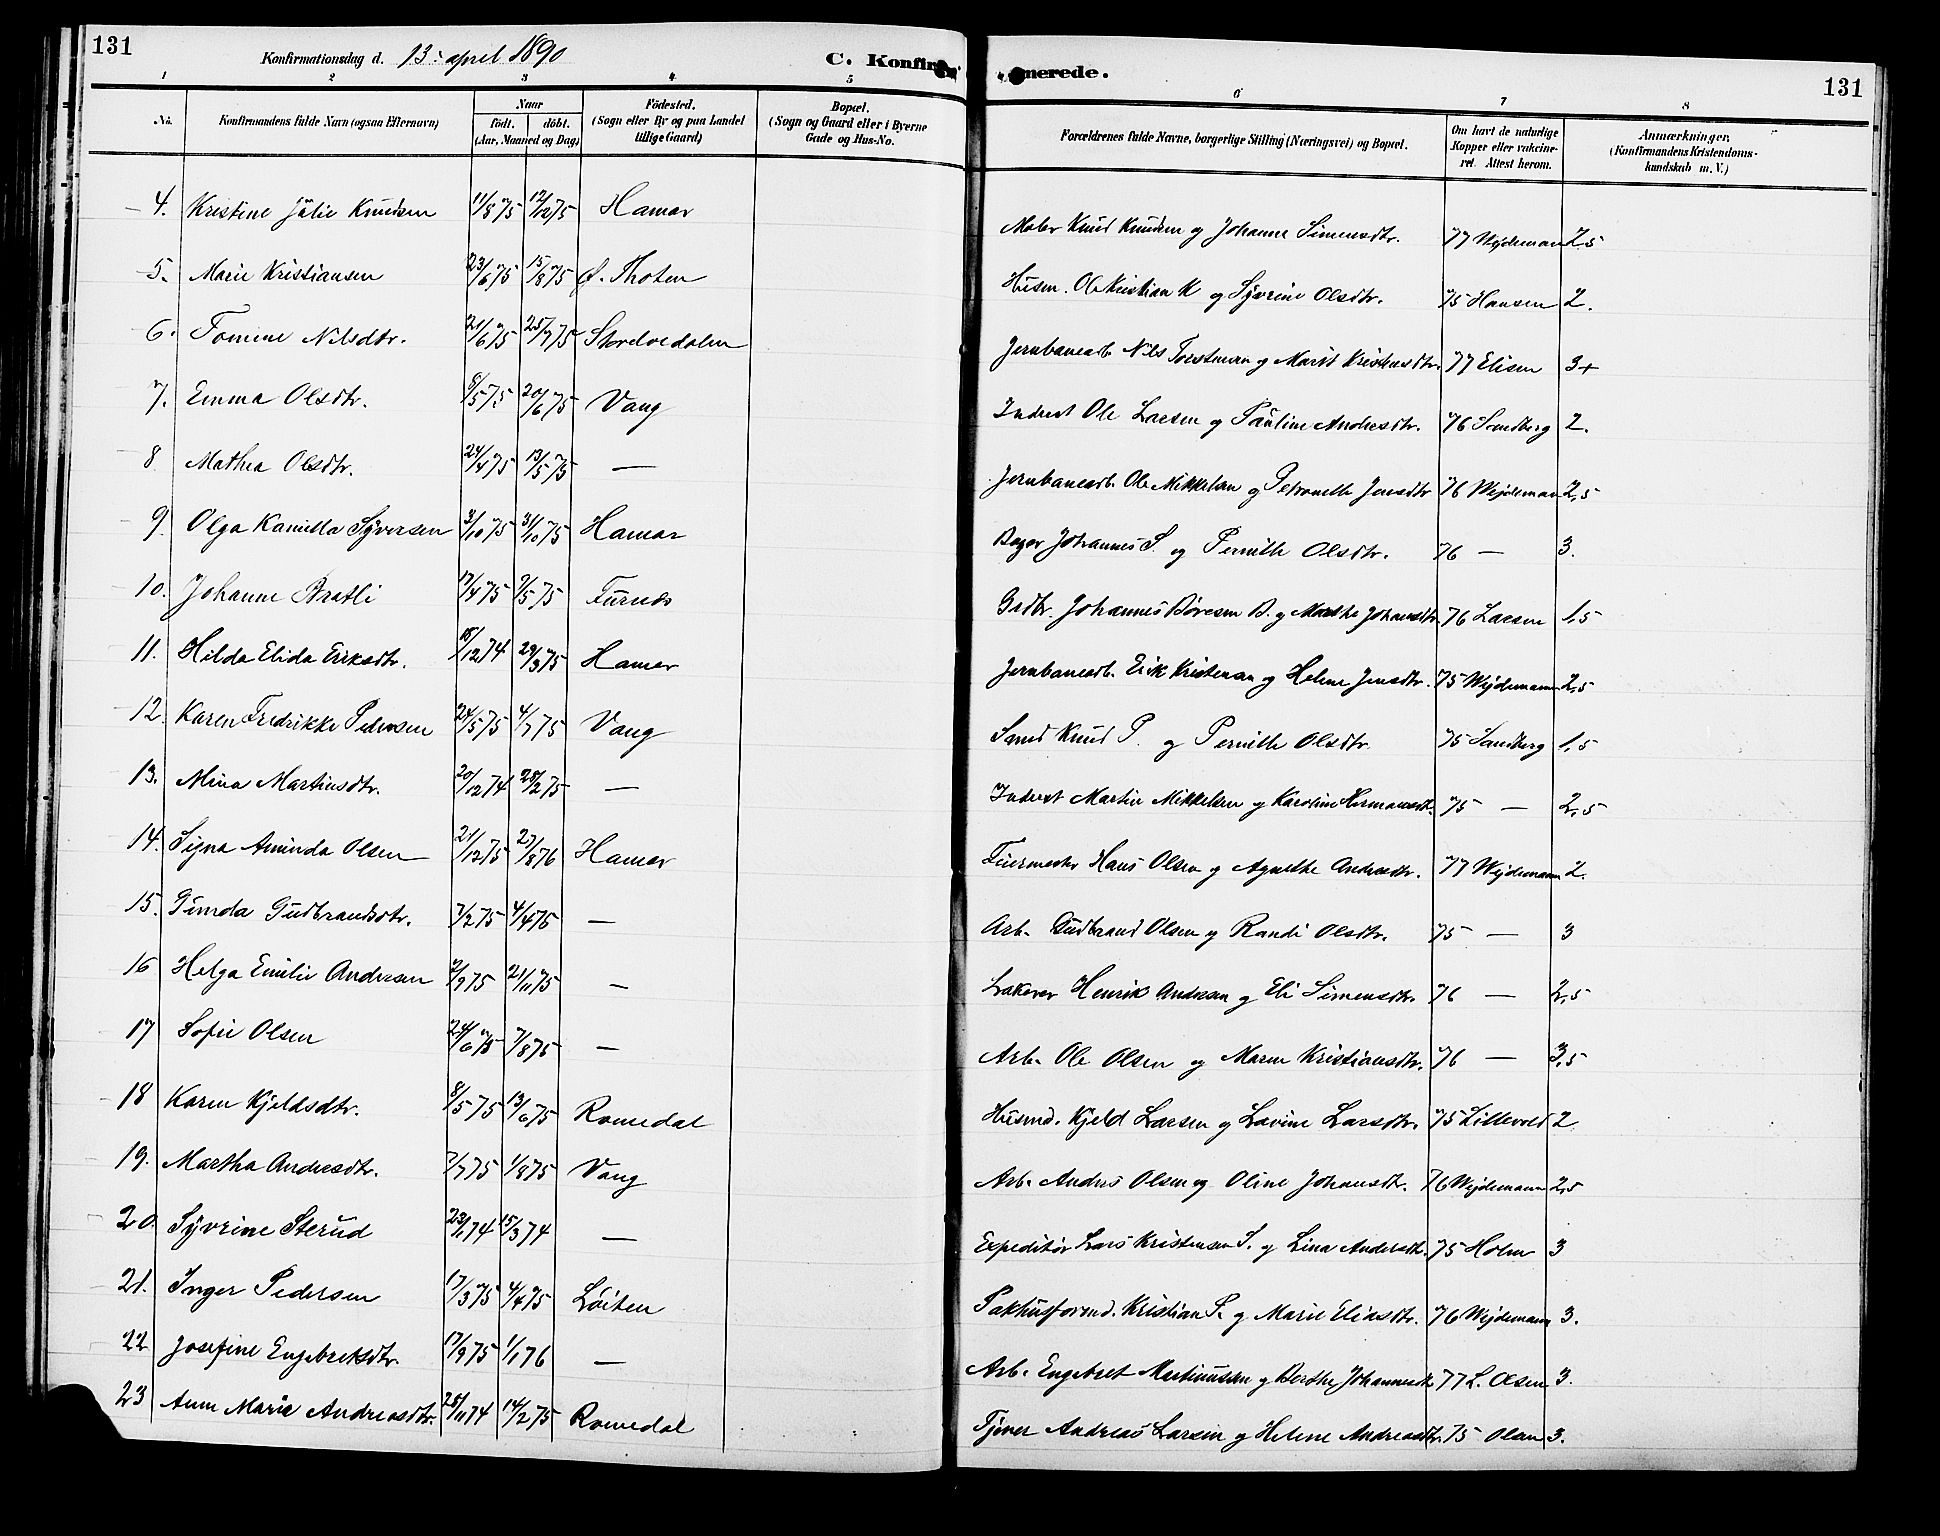 131
Konfirmationsdag d. 13. april 1890
C. Konfir
merede.
131
1 2 3 4 5 6 7 8
No. Konfirmandens fulde Navn (ogsaa Efternavn) Naar født. døbt. (Aar, Maaned og Dag) Fødested. (Sogn eller By og paa Landet tillige Gaard) Bopæl. (Sogn og Gaard eller i Byerne Gade og Hus-No. Forældrenes fulde Navne, borgerlige Stilling (Næringsvei) og Bopæl. Om havt de naturlige Kopper eller vakcineret. Attest herom. Anmærkninger, (Konfirmandens Kristendomskundskab m. V.)
4. Kristine Julie Knudsen 11/8 75 12/12 75 Hamar Maler Knud Knudsen og Johanne Simensdtr. 77 Wejdemann 2,5
5. Marie Kristiansen 23/6 75 15/8 75 Ø. Thoten Husm. Ole Kristian K og Syverine Olsdtr. 75 Hansen 2.
6. Tomine Nilsdtr. 21/6 75 25/7 75 Storelvedalen Jernbanearb. Nils Torstensen og Marit Kristensdtr. 77 Elisen 3+
7. Emma Olsdtr. 8/5 75 20/6 75 Vang Inderst Ole Larsen og Pauline Andersdtr. 76 Sandberg 2.
8. Mathea Olsdtr. 24/4 75 13/5 75 — Jernbanearb. Ole Mikkelsen og Petronelle Jensdtr 76 Wejdemann 2,5
9. Olga Kamilla Syversen 3/10 75 31/10 75 Hamar Bager Johannes S. og Pernille Olsdtr. 76 — 3.
10. Johanne Bratli 17/4 75 9/5 75 Furnes Grdbr. Johannes Børesen B. og Marthe Johansdtr. 76 Larsen 1,5
11. Hilda Elida Eriksdtr. 18/12 74 29/3 75 Hamar Jernbanearb. Erik Kristensen og Helene Jensdtr. 75 Wejdemann 2,5
12. Karen Fredrikke Pedersen 24/5 75 4/7 75 Vang Smed Knud P. og Pernille Olsdtr. 75 Sandberg 1,5
13. Mina Martinsdtr. 20/12 74 28/2 75 — Inderst Martin Mikkelsen og Karoline Hermansdtr. 75 — 2,5
14. Signa Aminda Olsen 21/12 75 27/8 76 Hamar Murmester Hans Olsen og Agnethe Andersdtr. 77 Wejdemann 2.
15. Gunda Gudbrandsdtr. 7/2 75 4/4 75 — Arb. Gudbrand Olsen og Randi Olsdtr. 75 — 3
16 Helga Emilie Andersen 2/9 75 21/11 75 — Lakerer Henrik Andersen og Eli Simensdtr. 76 — 2,5
17 Sofie Olsen 24/6 75 7/8 75 — Arb. Ole Olsen og Maren Kristiansdtr. 76 — 3,5
18 Karen Kjeldsdtr. 8/5 75 13/6 75 Romedal Husmd. Kjeld Larsen og Lovine Larsdtr. 75 Lillevold 2
19. Martha Andersdtr. 7/7 75 1/8 75 Vang Arb. Anders Olsen og Oline Johansdtr. 76 Wejdemann 2,5
20. Syvrine Sterud 23/1 74 15/3 74 — Expeditør Lars Kristensen S. og Lina Andersdtr. 75 Holm 3
21. Inger Pedersen 17/3 75 4/4 75 Løiten Pakhusformd. Kristian P. og Marie Eliasdtr. 76 Wejdemann 3.
22 Josefine Engebretsdtr. 17/9 75 1/1 76 — Arb. Engebret Martinussen og Berthe Johannesdtr 77 L. Olsen 3.
23 Anne Marie Andreasdtr. 28/11 74 14/2 75 Romedal Tjener Andreas Larsen og Helene Andreasdtr. 75 Olsen 3.